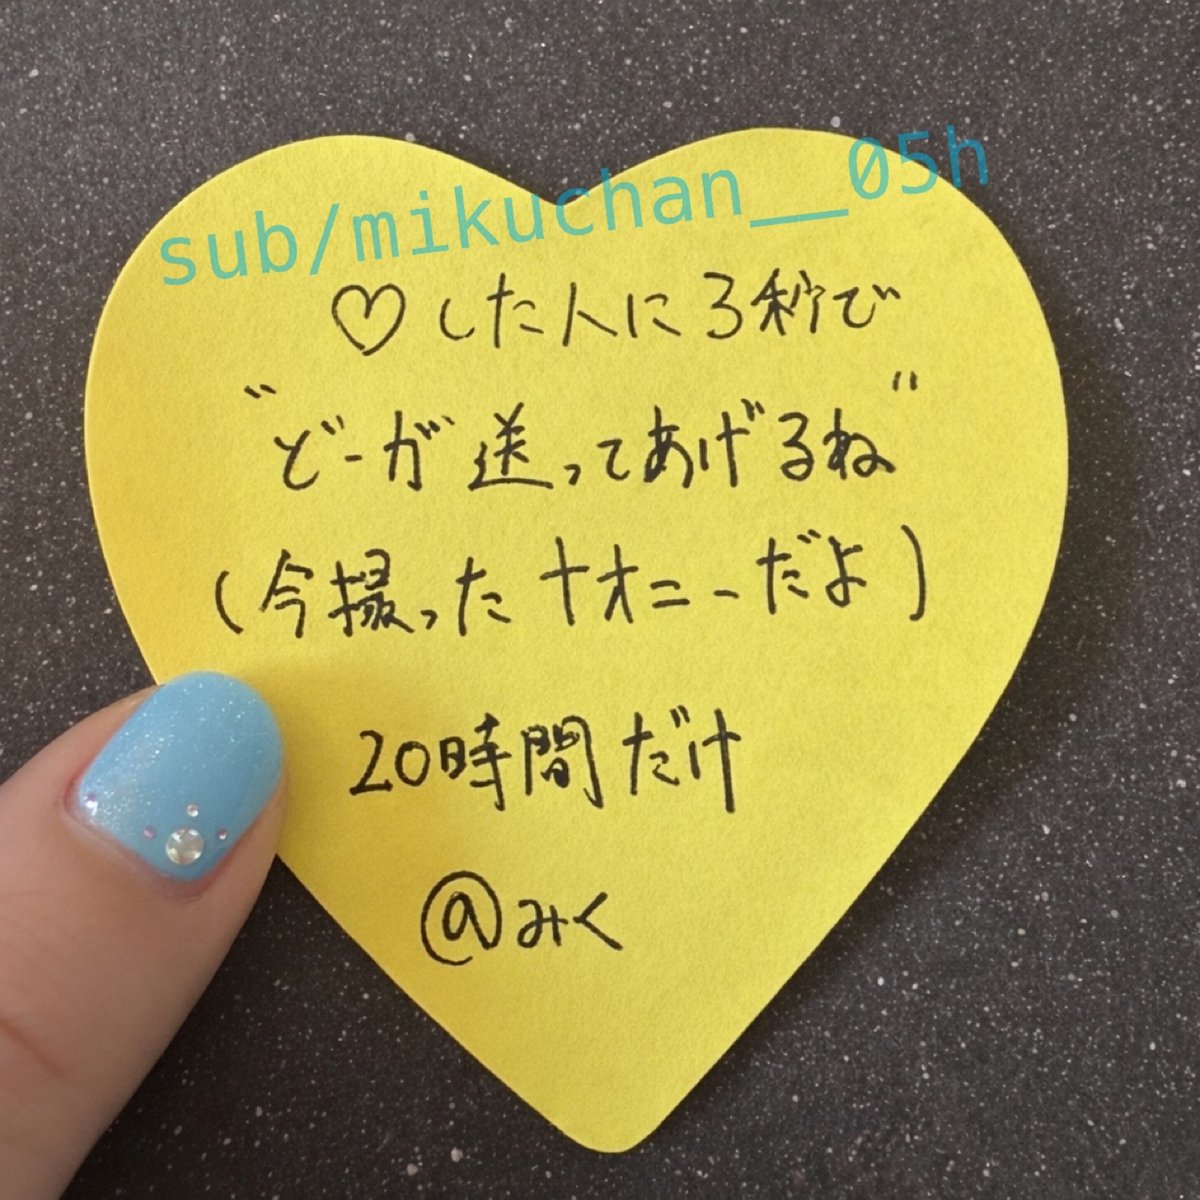 sub/mikuchan__05h
♡した人に3秒で
"どーが送ってあげるね"
(今撮ったナオニーだよ)
20時間だけ
@みく